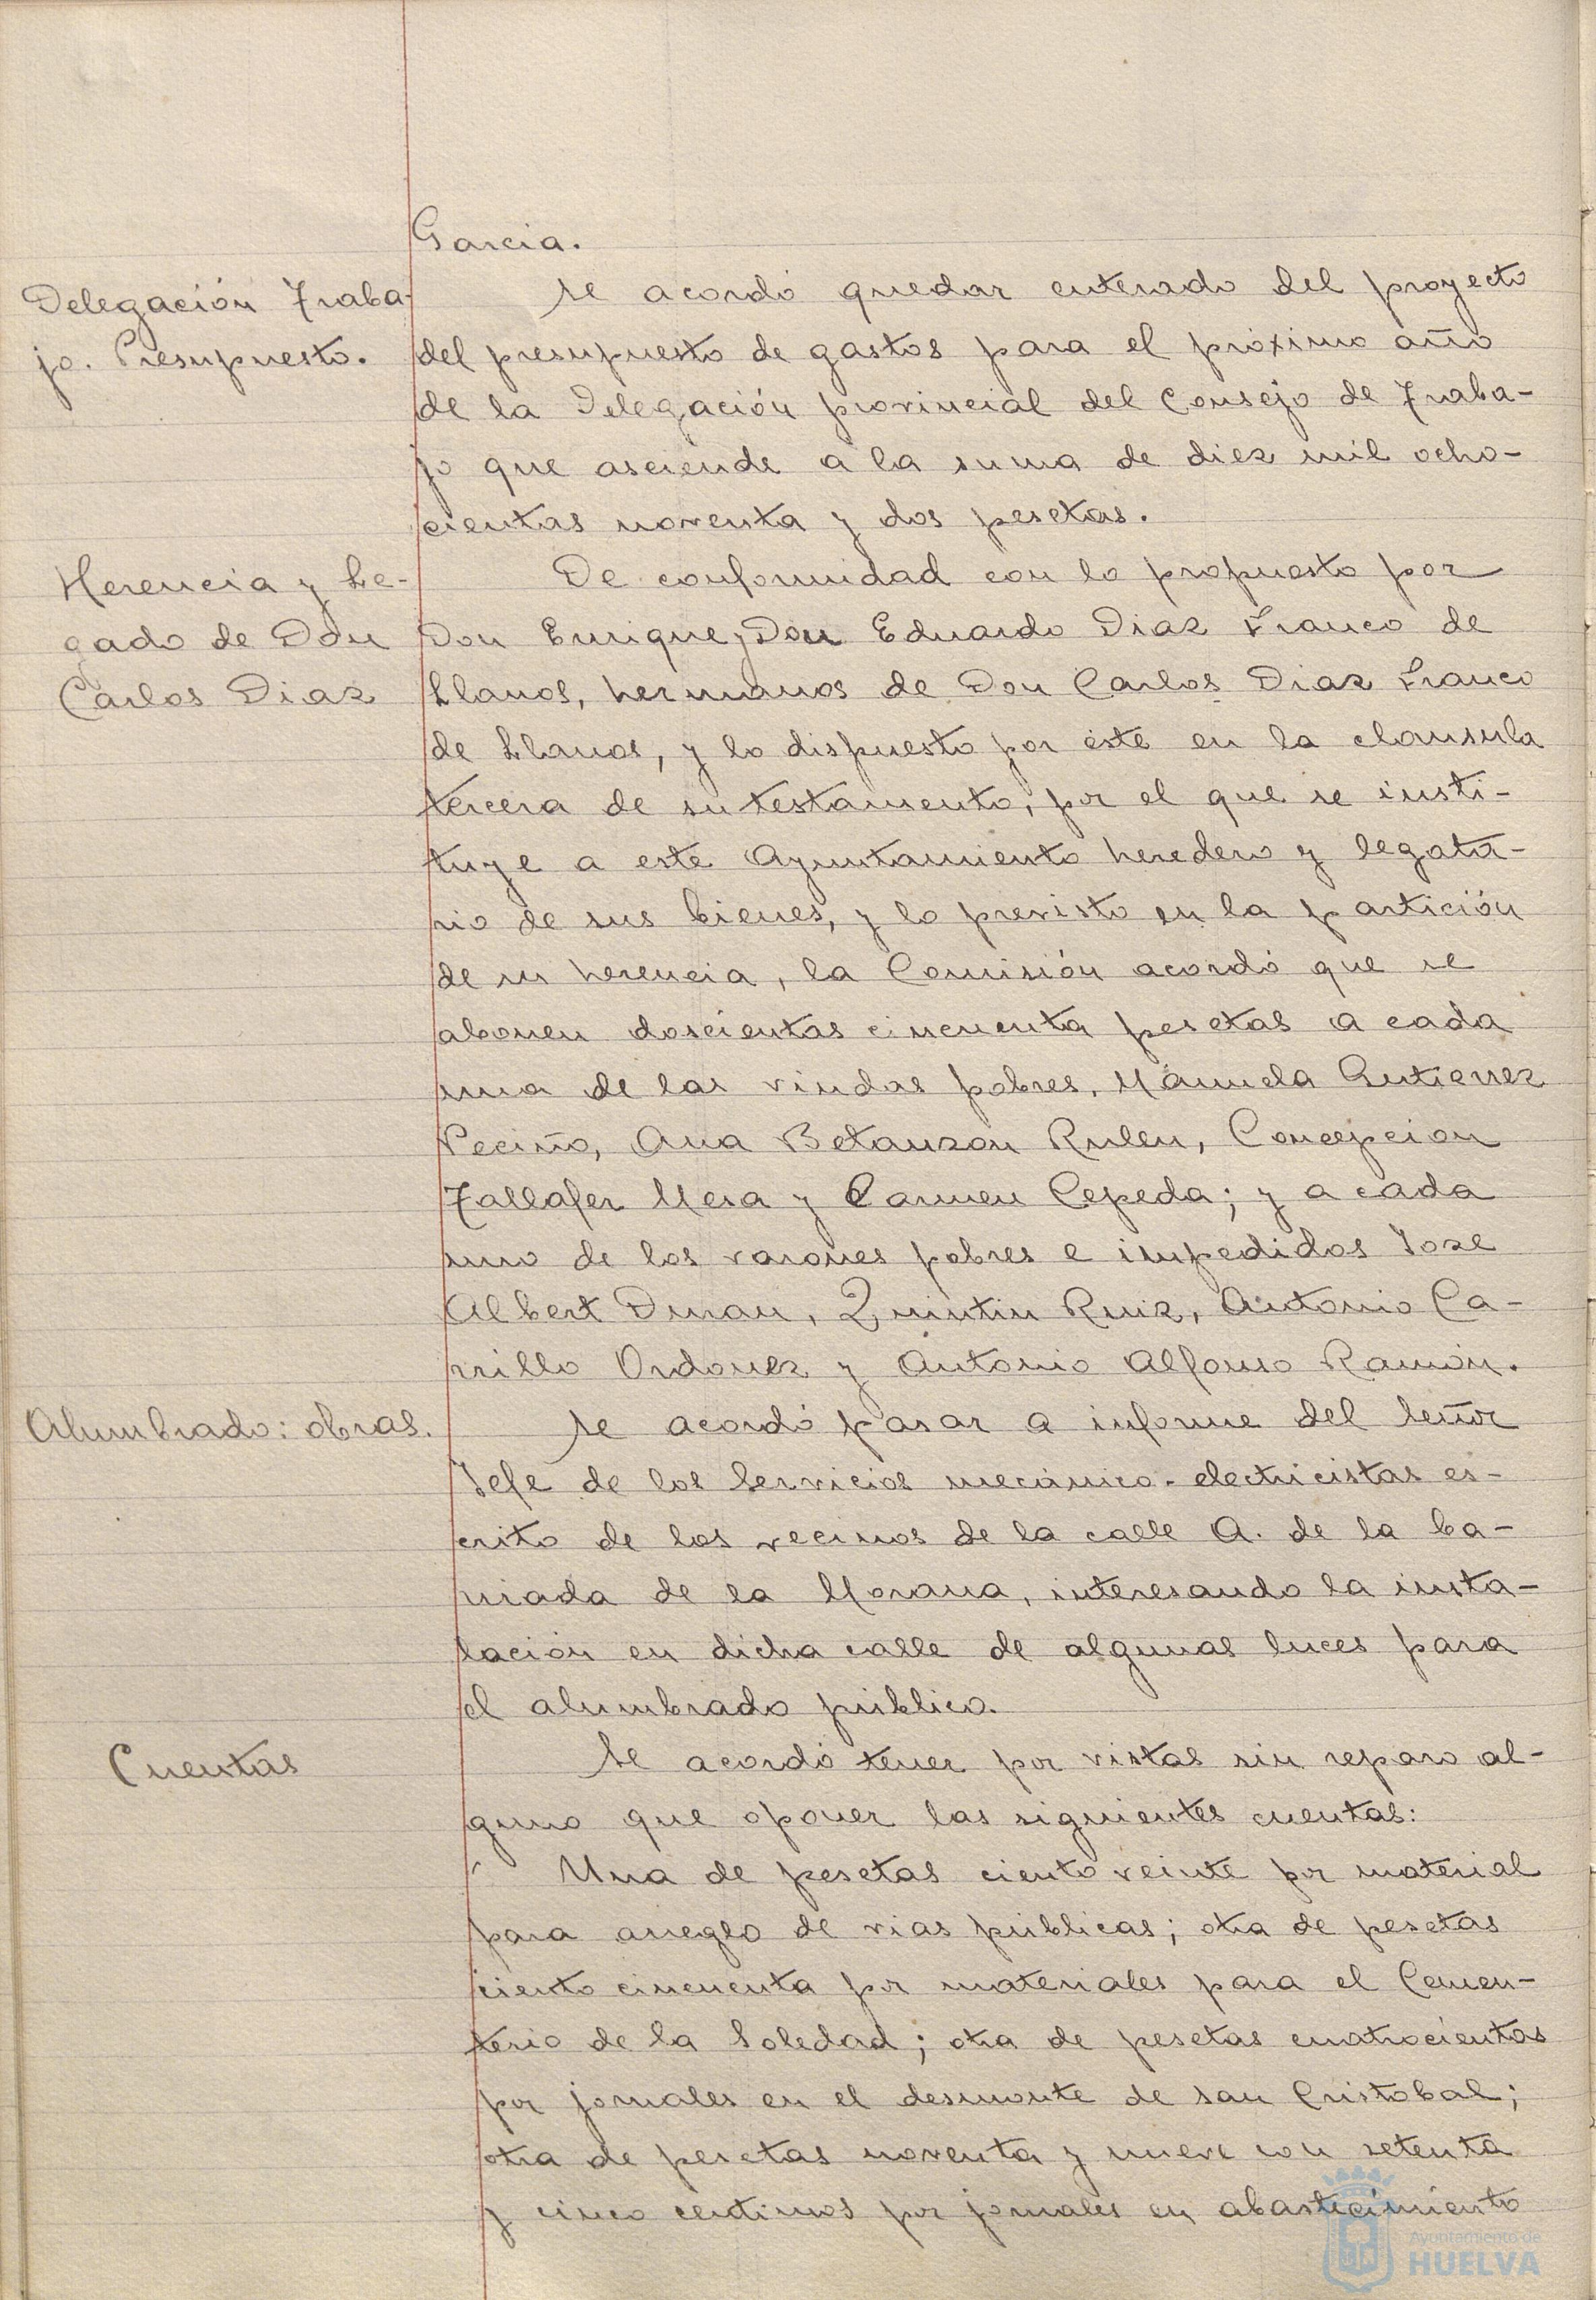 Garcia.
Delegación Traba-
jo. Presupuesto.
Se acordó quedar enterado del proyecto
del presupuesto de gastos para el próximo año
de la Delegación provincial del Consejo de Traba-
jo que asciende a la suma de diez mil ocho-
cientas noventa y dos pesetas.
Herencia y Le-
gado de Don
Carlos Diaz
De conformidad con lo propuesto por
Don Enrique y Don Eduardo Diaz Franco de
Llanos, hermanos de Don Carlos Diaz Franco
de Llanos, y lo dispuesto por éste en la clausula
tercera de su testamento, por el que se insti-
tuye a este Ayuntamiento heredero y legata-
rio de sus bienes, y lo previsto en la partición
de su herencia, la Comisión acordó que se
abonen doscientas cincuenta pesetas a cada
una de las viudas pobres, Manuela Gutierrez
Peciño, Ana Betanzon Rulen, Concepcion
Tallafer Mesa y Carmen Cepeda; y a cada
uno de los varones pobres e impedidos Jose
Albert Duran, Quintin Ruiz, Antonio Ca-
rrillo Ordonez y Antonio Alfonso Ramón.
Alumbrado: obras.
Se acordó pasar a informe del Señor
Jefe de los Servicios mecánico-electricistas es-
crito de los vecinos de la calle A. de la ba-
rriada de la Morana, interesando la insta-
lación en dicha calle de algunas luces para
el alumbrado público.
Cuentas
Se acordó tener por vistas sin reparo al-
guno que oponer las siguientes cuentas:
Una de pesetas ciento veinte por material
para arreglo de vias públicas; otra de pesetas
ciento cincuenta por materiales para el Cemen-
terio de la Soledad; otra de pesetas cuatrocientas
por jornales en el desmonte de San Cristobal;
otra de pesetas noventa y nueve con setenta
y cinco centimos por jornales en abastecimiento
Ayuntamiento de
HUELVA